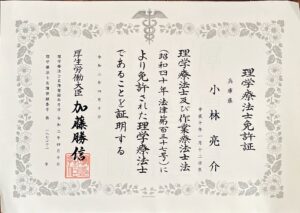 理学療法士免許証
兵庫県
小林亮介
平成十年一月十二日生
理学療法士及び作業療法士法
(昭和四十年法律第百三十七号)に
より免許された理学療法士
であることを証明する
厚生労働大臣 加藤勝信